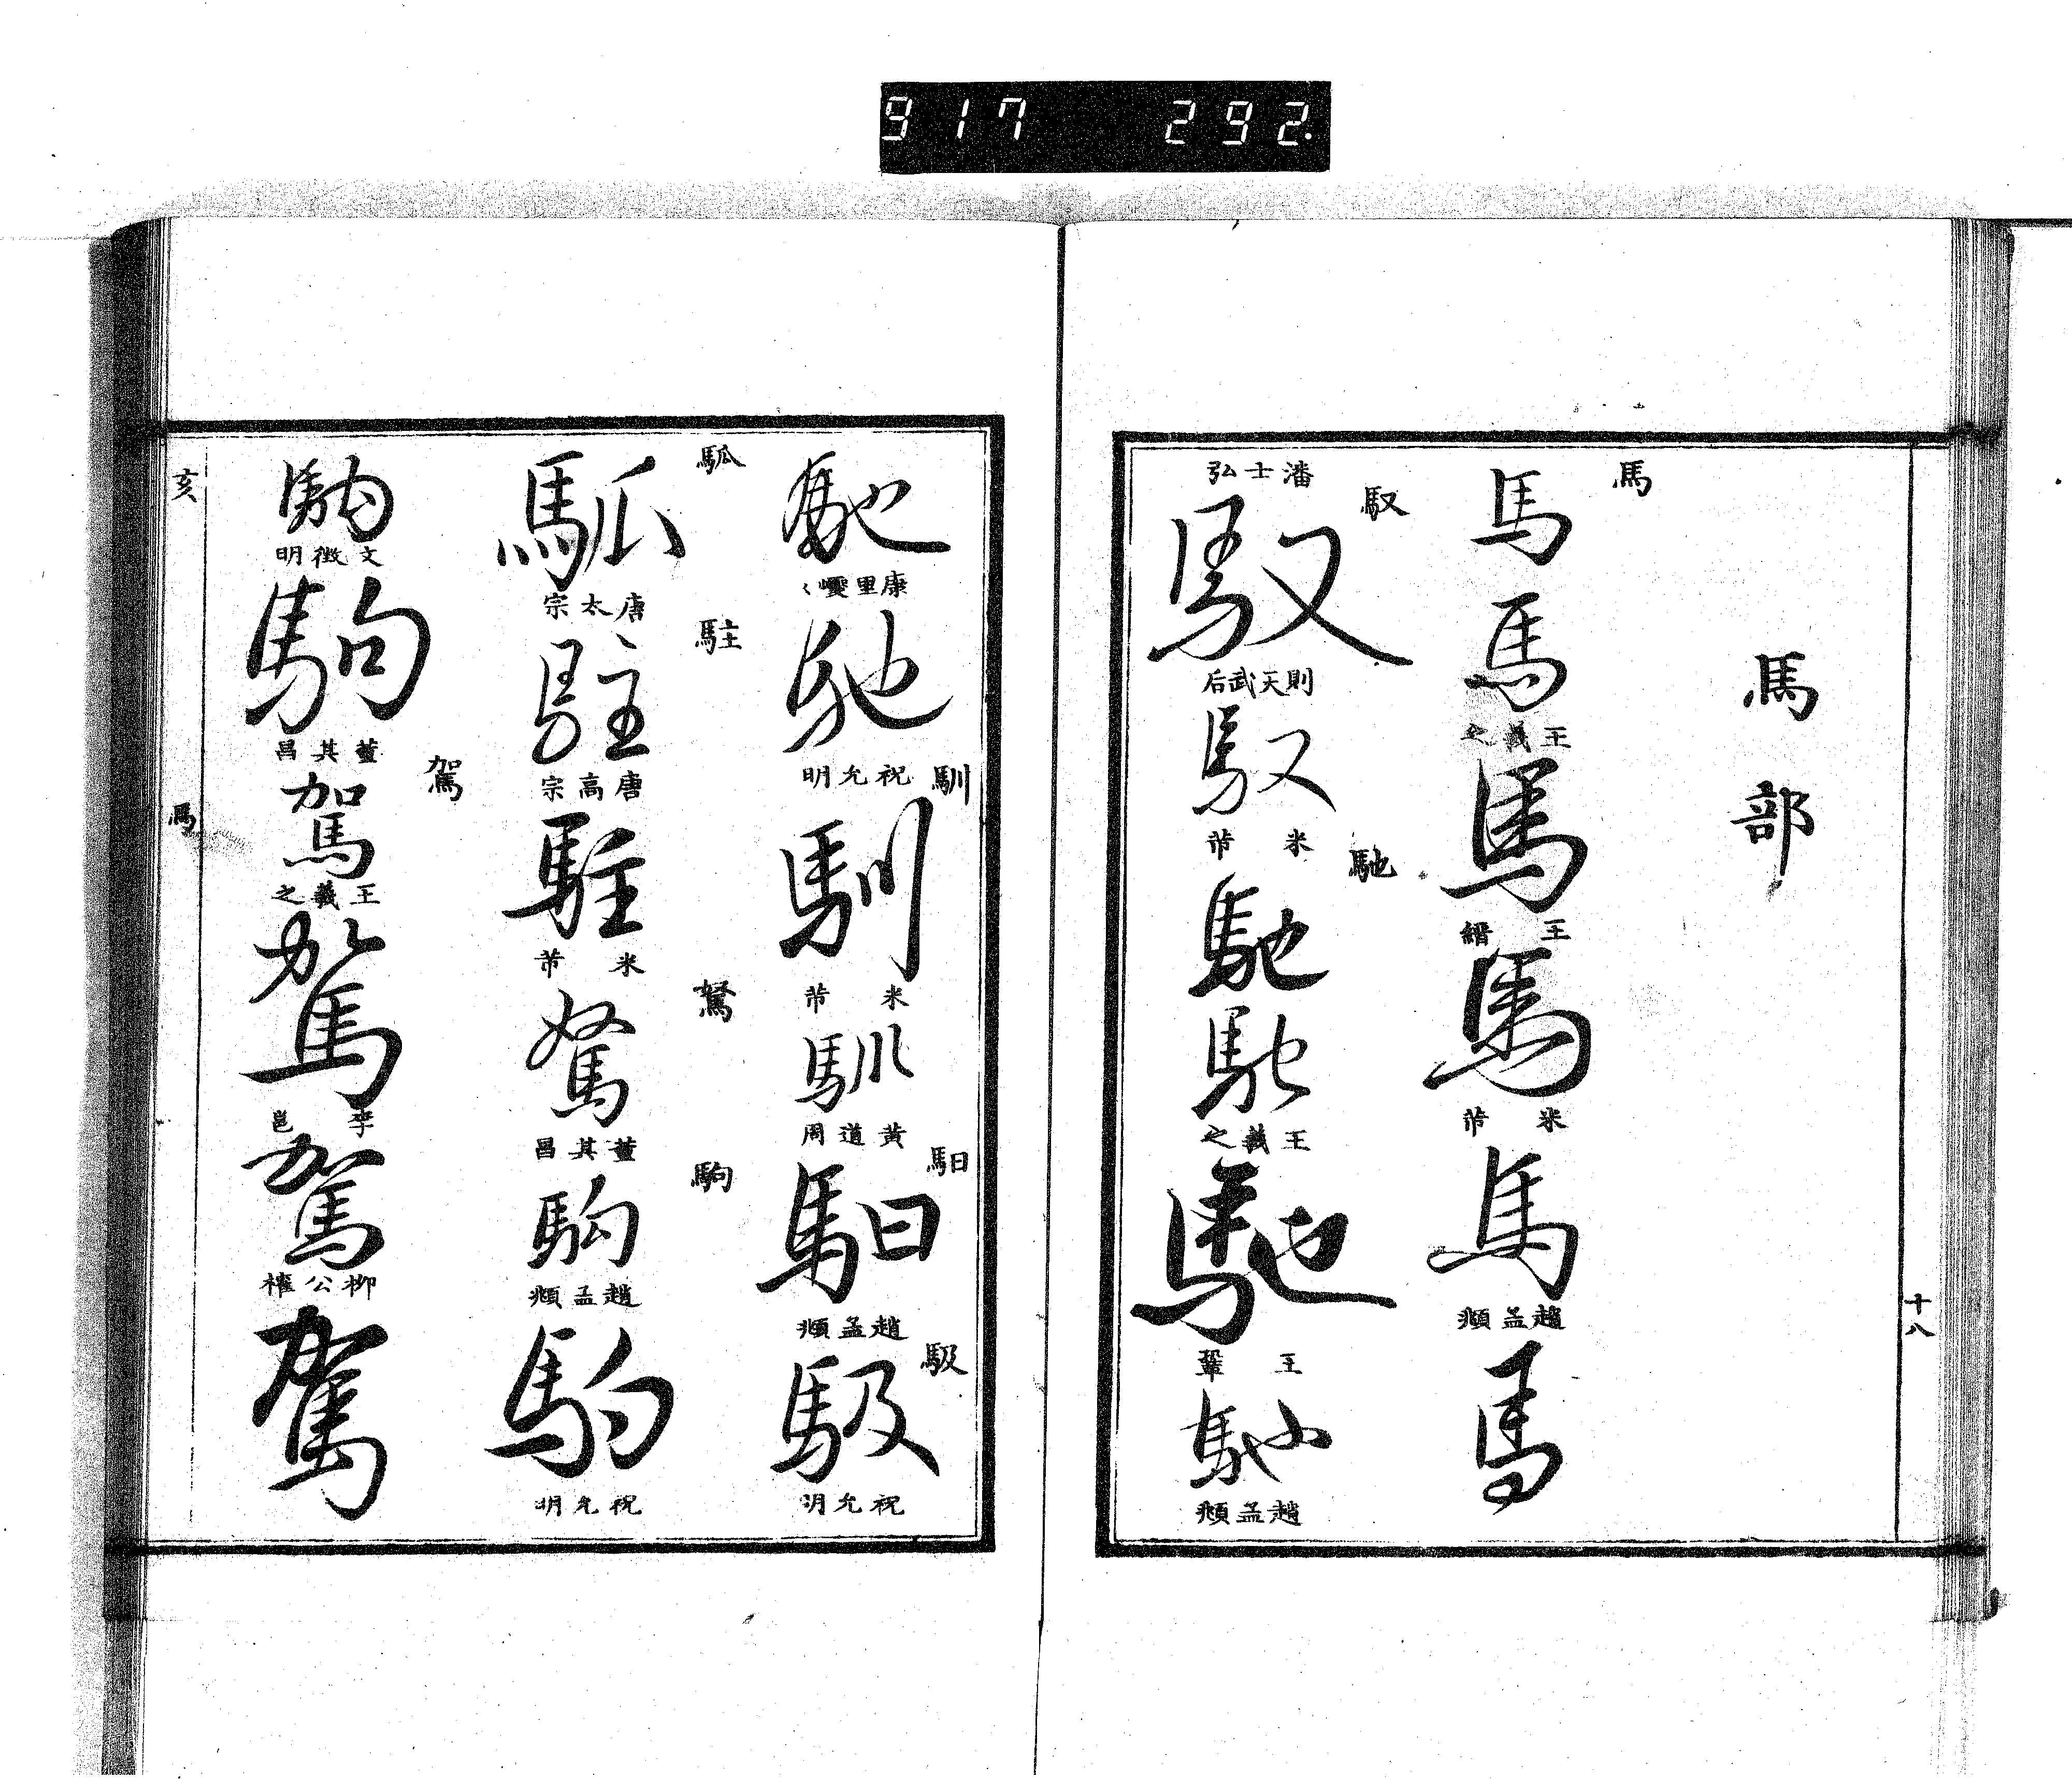 917 292.
馬部
馬
馬
馬
王羲之
馬
王縉
馬
米芾
馬
趙孟頫
馬
潘士弘
馭
馭
則天武后
馭
米芾
馳
馳
馳
王羲之
馳
王鞏
馳
趙孟頫
十八
馳
康里巎〻
馳
祝允明
馴
馴
米芾
馴
黃道周
馹
馹
趙孟頫
馺
馺
祝允明
䮄
䮄
唐太宗
駐
駐
唐高宗
駐
米芾
駑
駑
董其昌
駒
駒
趙孟頫
駒
祝允明
駒
文徵明
駒
董其昌
駕
駕
王羲之
駕
李邕
駕
柳公權
駕
亥
馬